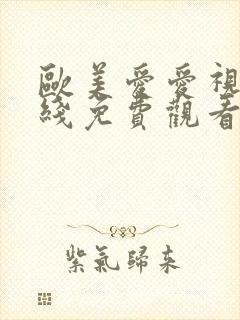 歐美愛愛視
綫免費觀看
紫氣歸来